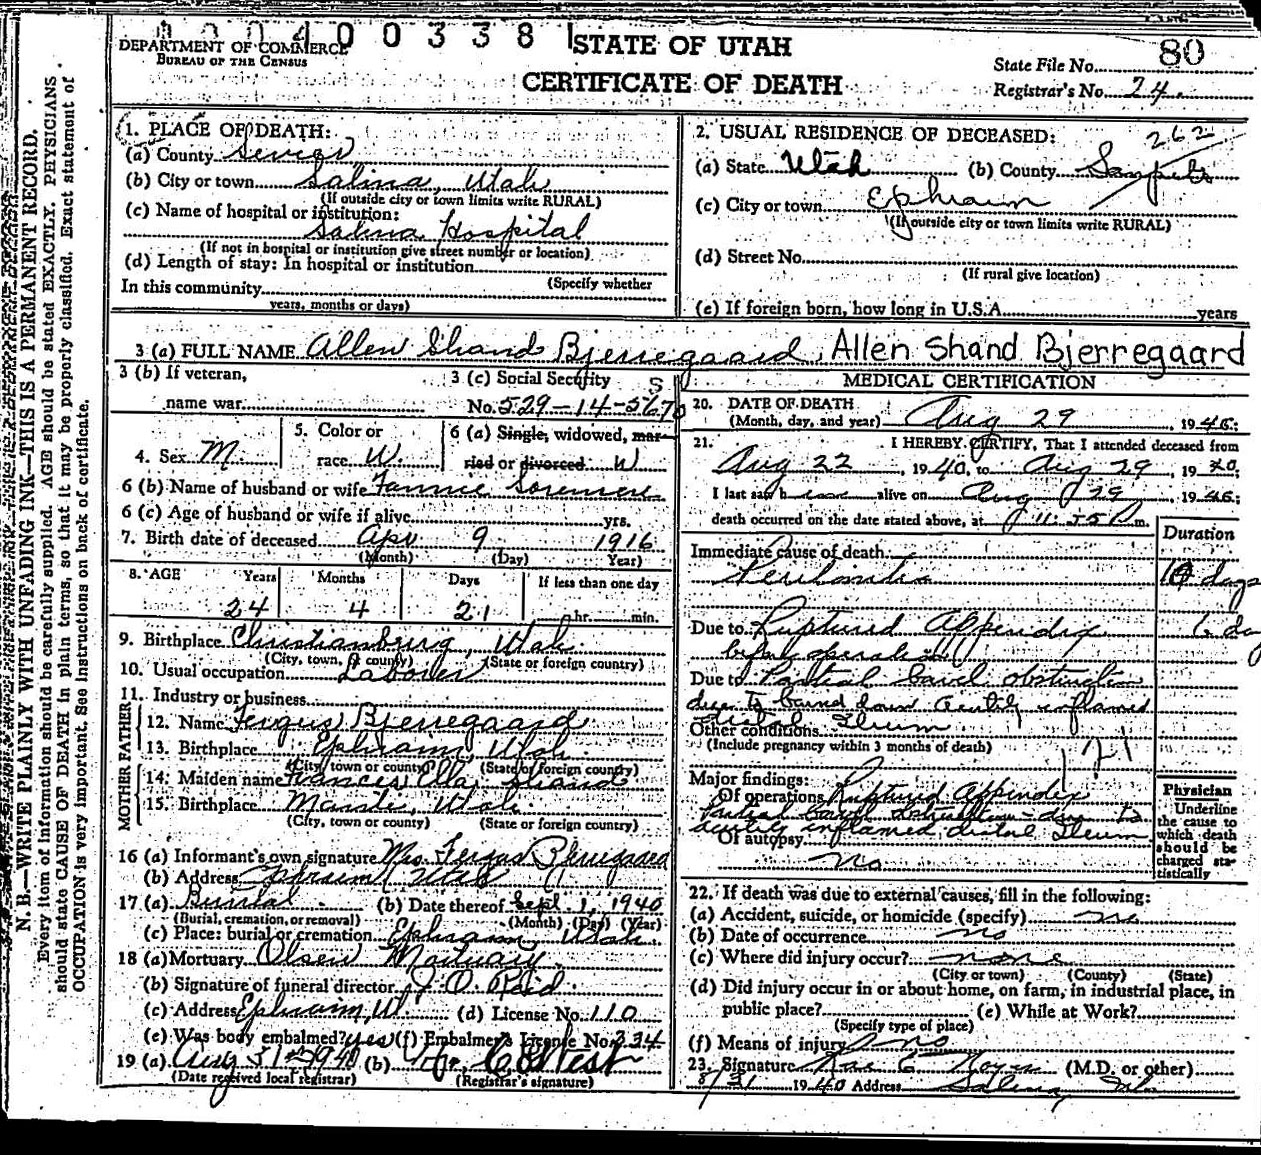 0 0 0 4 0 0 3 3 8 1
STATE OF UTAH
DEPARTMENT OF COMMERCE
BUREAU OF THE CENSUS
CERTIFICATE OF DEATH
State File No. 80
Registrar's No. 24
N. B.—WRITE PLAINLY WITH UNFADING INK—THIS IS A PERMANENT RECORD.
Every item of information should be carefully supplied. AGE should be stated EXACTLY. PHYSICIANS
should state CAUSE OF DEATH in plain terms, so that it may be properly classified. Exact statement of
OCCUPATION is very important. See instructions on back of certificate.
1. PLACE OF DEATH:
(a) County Sevier
(b) City or town Salina, Utah
(If outside city or town limits write RURAL)
(c) Name of hospital or institution:
Salina Hospital
(If not in hospital or institution give street number or location)
(d) Length of stay: In hospital or institution
(Specify whether
In this community
years, months or days)
2. USUAL RESIDENCE OF DECEASED:
262
(a) State Utah (b) County Sanpete
(c) City or town Ephraim
(If outside city or town limits write RURAL)
(d) Street No.
(If rural give location)
(e) If foreign born, how long in U.S.A. years
3 (a) FULL NAME Allen Shand Bjerregaard, Allen Shand Bjerregaard
3 (b) If veteran,
name war
3 (c) Social Security
No. 529-14-5670
4. Sex M.
5. Color or
race W.
6 (a) Single, widowed, mar-
ried or divorced W
6 (b) Name of husband or wife Fannie Sorensen
6 (c) Age of husband or wife if alive yrs.
7. Birth date of deceased Apr 9 1916
(Month) (Day) Year)
8. AGE Years Months Days If less than one day
24 4 21 hr. min.
9. Birthplace Christianburg, Utah
(City, town, or county) (State or foreign country)
10. Usual occupation Laborer
11. Industry or business
FATHER
12. Name Fergus Bjerregaard
13. Birthplace Ephraim, Utah.
(City, town or county) (State or foreign country)
MOTHER
14. Maiden name Frances Ella Shand
15. Birthplace Manti, Utah.
(City, town or county) (State or foreign country)
16 (a) Informant's own signature Mrs. Fergus Bjerregaard
(b) Address Ephraim Utah
17 (a) Burial (b) Date thereof Sept. 1, 1940
(Burial, cremation, or removal) (Month) (Day) (Year)
(c) Place: burial or cremation Ephraim Utah.
18 (a) Mortuary Olsen Mortuary
(b) Signature of funeral director
(c) Address Ephraim, Ut. (d) License No. 110
(e) Was body embalmed? yes (f) Embalmer's License No. 334
19 (a) Aug 31st 1940 (b) West
(Date received local registrar) (Registrar's signature)
MEDICAL CERTIFICATION
20. DATE OF DEATH
(Month, day, and year) Aug 29 1940;
21. I HEREBY CERTIFY, That I attended deceased from
Aug 22, 1940, to Aug 29 1940;
I last saw him alive on Aug 29 1940;
death occurred on the date stated above, at 11:55 P m.
Duration
Immediate cause of death
Peritonitis days
Due to Ruptured Appendix
before operation
Due to Partial bowel obstruction
due to bound down acutely inflamed
distal Ileum
Other conditions
(Include pregnancy within 3 months of death)
121
Major findings:
Of operations Ruptured Appendix
Partial bowel obstruction - due to
acutely inflamed distal Ileum
Of autopsy
no
Physician
Underline
the cause to
which death
should be
charged sta-
tistically
22. If death was due to external causes, fill in the following:
(a) Accident, suicide, or homicide (specify) no
(b) Date of occurrence no
(c) Where did injury occur? none
(City or town) (County) (State)
(d) Did injury occur in or about home, on farm, in industrial place, in
public place? (e) While at Work?
(Specify type of place)
(f) Means of injury no
23. Signature Rae E Noyes (M.D. or other)
8/31 1940 Address Salina, Utah